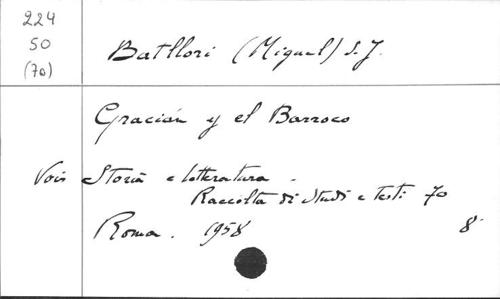 224
50
(70)
Batllori (Miguel) S.J.
Gracián y el Barroco
Vois Storia e letteratura.
Raccolta di Studi e Testi 70
Roma. 1958
8°